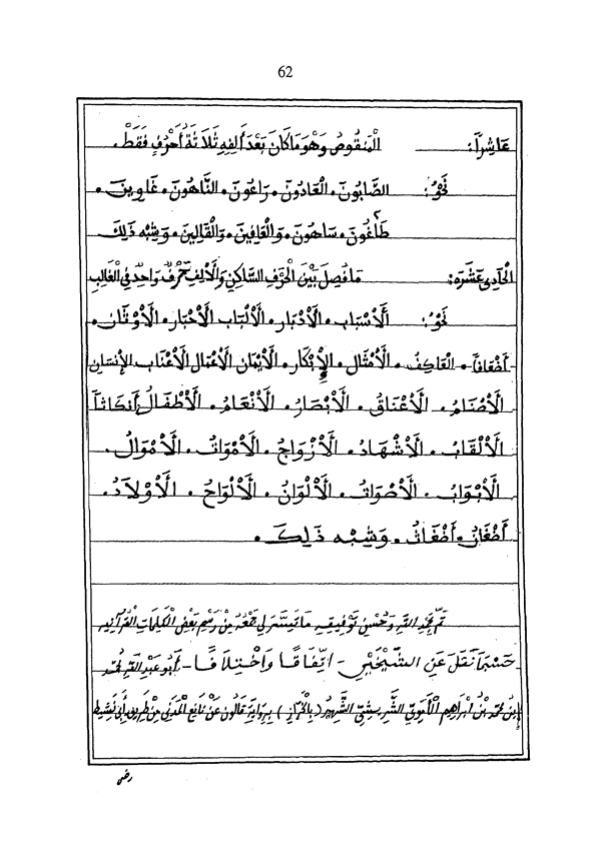 62
عَاشِراً: الْمَنقُوصُ وَهْوَ مَا كَانَ بَعْدَ أَلِفِهِ ثَلَاثَةُ أَحْرُفٍ فَقَطْ.
نَحْوُ: الصَّابُونَ. الْعَادُونَ. رَاعُونَ. النَّاهُونَ. غَاوِينَ.
طَاغُونَ. سَاهُونَ. وَالْعَافِينَ. وَالْقَالِينَ. وَشِبْهُ ذَلِكَ
الْحَادِي عَشَرَة: مَا فُصِلَ بَيْنَ الْحَرْفِ السَّاكِنِ وَالْأَلِفِ حَرْفٌ وَاحِدٌ فِي الْغَالِبِ
نَحْوُ: الْأَسْبَاب. الْأَدْبَار. الْأَلْبَاب الْأَحْبَار. الْأَوْثَان.
أَضْعَافاً. الْعَاكِفُ. الْأَمْثَال. الْإِبْكَار. الْأَيْمَان الْأَعْمَال الْأَعْنَاب الْإِنسَان
الْأَصْنَامُ. الْأَعْنَاقُ. الْأَبْصَارُ. الْأَنْعَامُ. الْأَطْفَالُ أَنكَاثاً
الْأَلْقَابُ. الْأَشْهَادُ. الْأَزْوَاجُ. الْأَمْوَاتُ. الْأَمْوَالُ.
الْأَبْوَابُ. الْأَصْوَاتُ. الْأَلْوَانُ. الْأَلْوَاحُ. الْأَوْلَادُ.
أَضْغَانٌ. أَضْغَاثُ. وَشِبْهُ ذَلِكَ.
تَمَّ بِحَمْدِ اللَّهِ وَحُسْنِ تَوْفِيقِهِ مَا تَيَسَّرَ لِي جَمْعُهُ مِنْ رَسْمِ بَعْضِ الْكَلِمَاتِ الْقُرْآنِيَّةِ
حَسْبَمَا نُقِلَ عَنِ الشَّيْخَيْنِ - اتِّفَاقًا وَاخْتِلَافًا - أَبُو عَبْدِ اللَّهِ مُحَمَّد
ابْنُ مُحَمَّد بْنُ ابْرَاهِيم الْأُمَوِيّ الشَّرِيشِيّ الشَّهِيرُ (بِالْخَرَّازِ) بِرِوَايَةِ قَالُونَ عَنْ نَافِعِ الْمَدَنِي مِنْ طَرِيقِ أَبِي نَشِيط
رضي